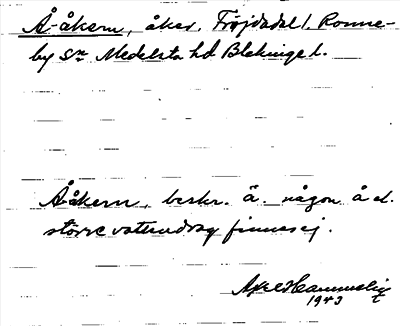 Å-åkern, åker. Fröjdadal l. Ronne-
by Sn Medelsta hd Blekinge l.
Åkern, beskr. ä. någon å el.
större vattendrag finnes ej.
Axel
1943